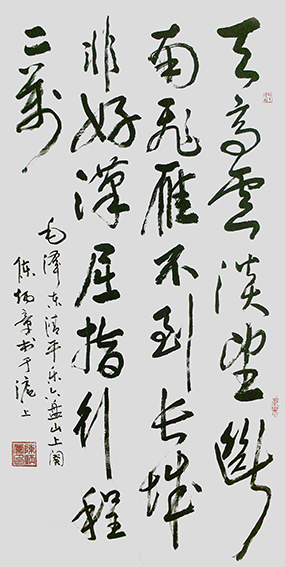 天高云淡望断
南飞雁不到长城
非好汉屈指行程
二万
毛泽东清平乐六盘山上阕
陈炳章书于沪上